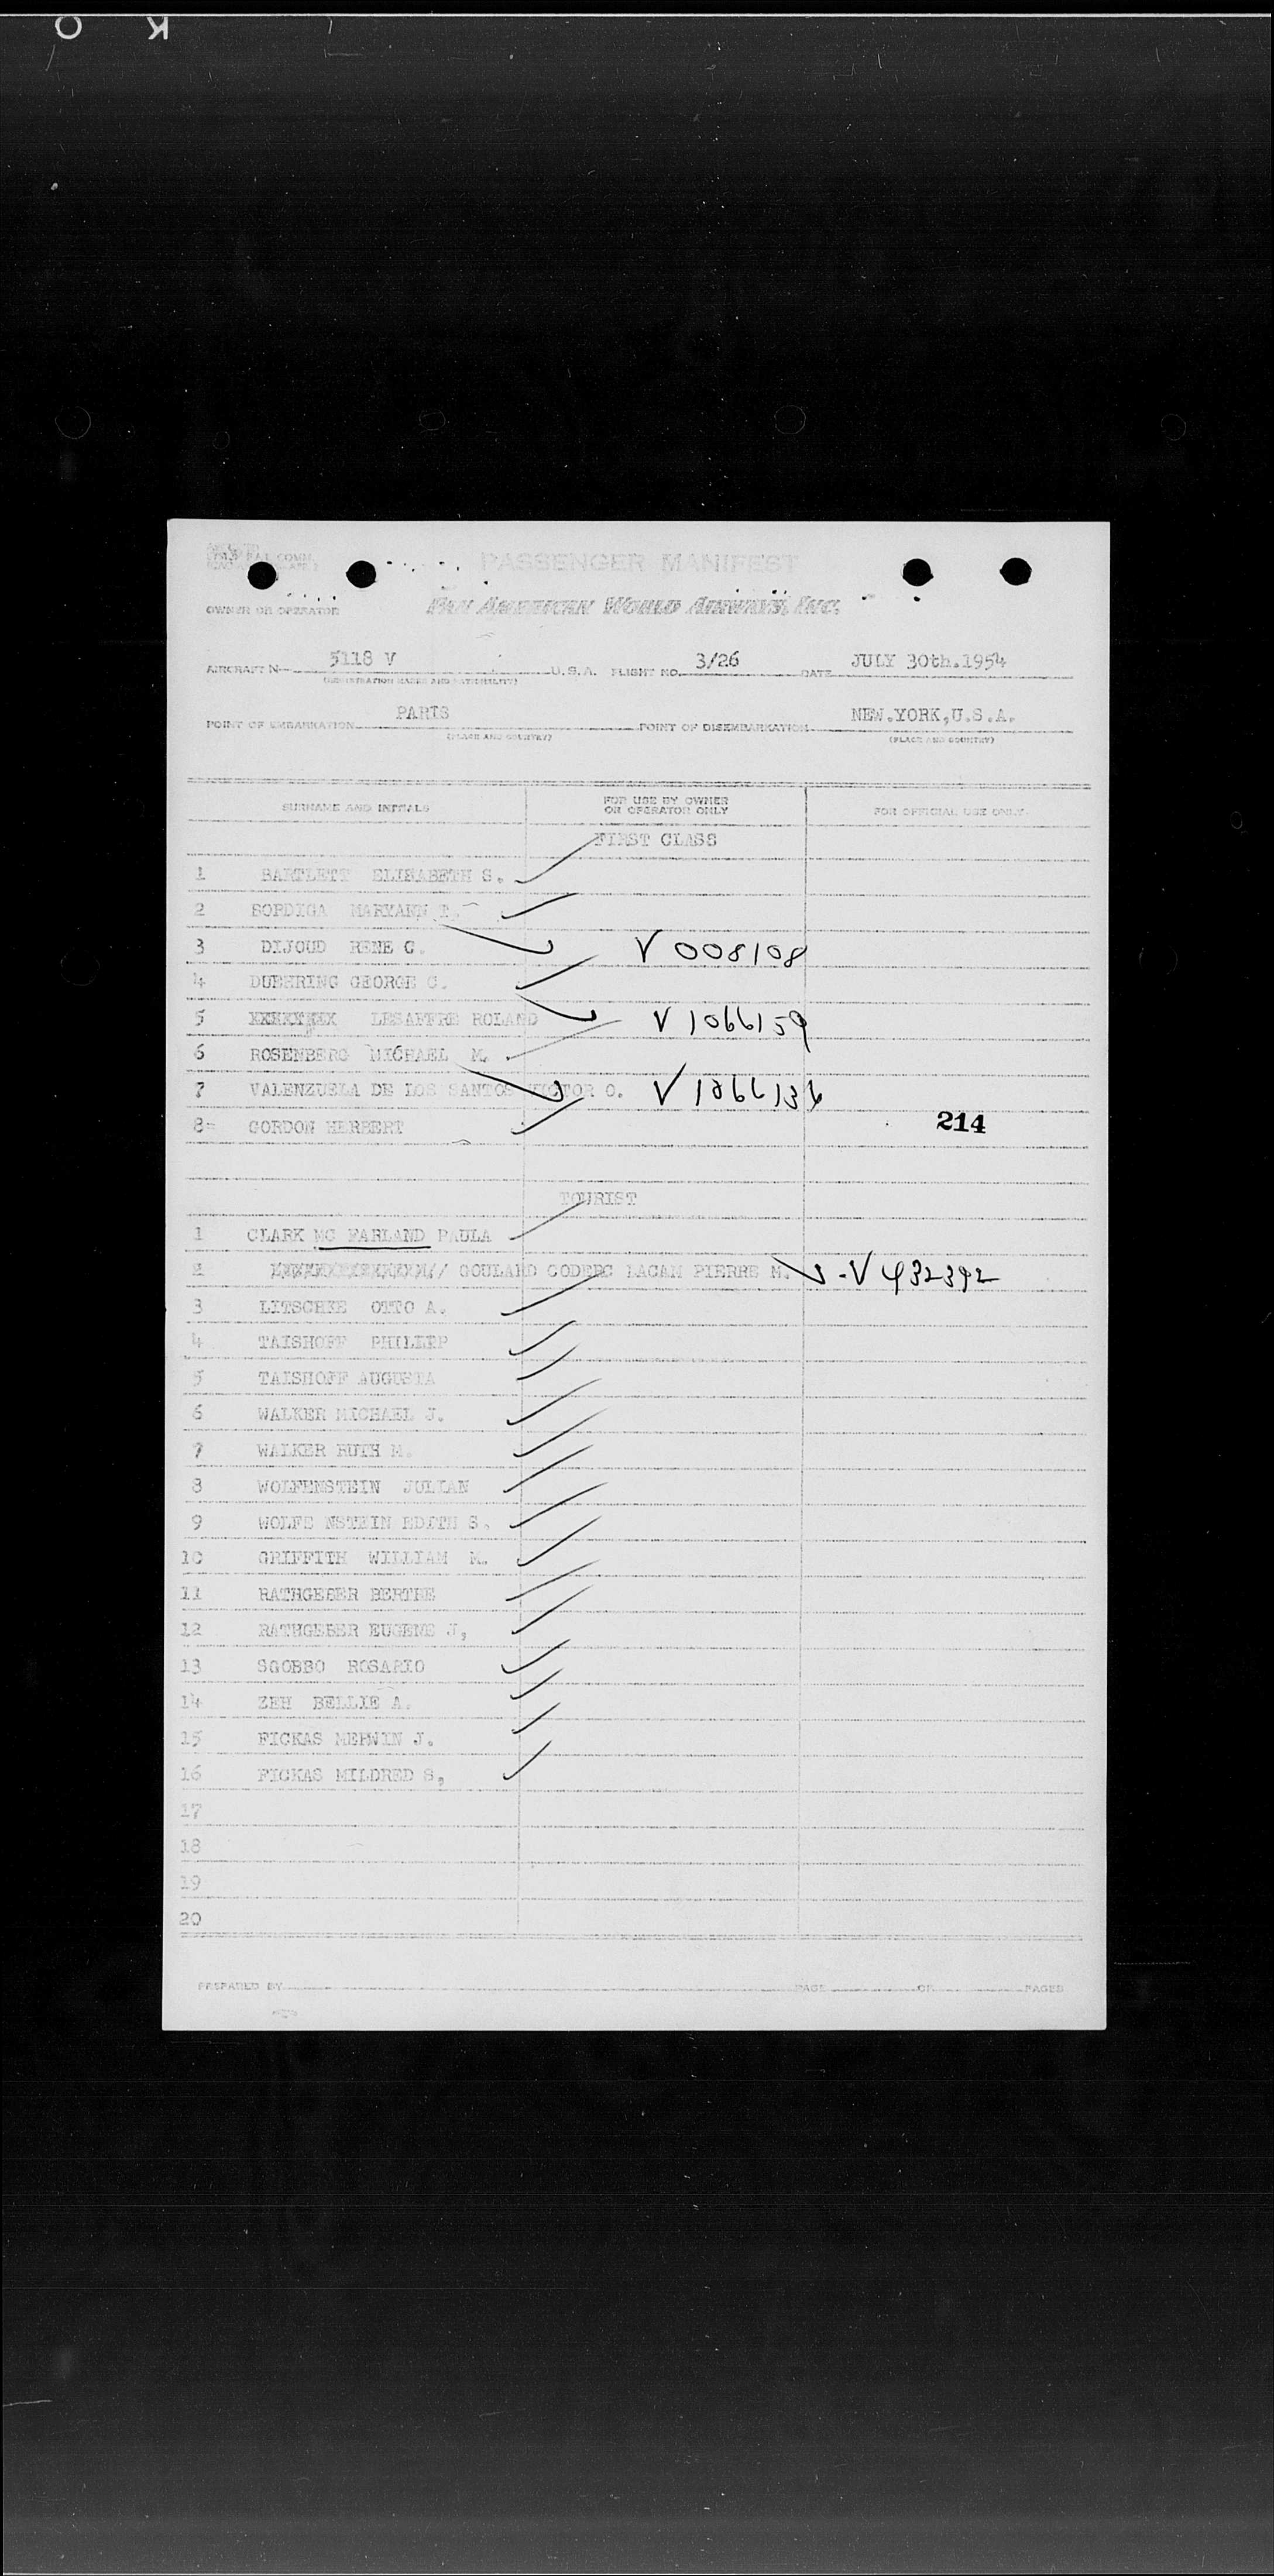 PASSENGER MANIFEST
OWNER OR OPERATOR PAN AMERICAN WORLD AIRWAYS, INC.
AIRCRAFT N 5118 V U.S.A. FLIGHT NO. 3/26 DATE JULY 30th.1954
(REGISTRATION MARKS AND NATIONALITY)
POINT OF EMBARKATION PARIS POINT OF DISEMBARKATION NEW.YORK,U.S.A.
(PLACE AND COUNTRY) (PLACE AND COUNTRY)
SURNAME AND INITIALS FOR USE BY OWNER OR OPERATOR ONLY FOR OFFICIAL USE ONLY
FIRST CLASS
1 BARTLETT ELISABETH S.
2 BORDIGA MARYANN T.
3 DIJOUD RENE G. V 008108
4 DUEHRING GEORGE C.
5 LESAFFRE ROLAND V 1066159
6 ROSENBERG MICHAEL M.
7 VALENZUELA DE LOS SANTOS VICTOR O. V 1266136
8- GORDON HERBERT 214
TOURIST
1 CLARK MC FARLAND PAULA
2 // GOULARD CODERC LACAN PIERRE M. V 432392
3 LITSCHIE OTTO A.
4 TAISHOFF PHILLIP
5 TAISHOFF AUGUSTA
6 WALKER MICHAEL J.
7 WALKER RUTH M.
8 WOLFENSTEIN JULIAN
9 WOLFE NSTEIN EDITH S.
10 GRIFFITH WILLIAM M.
11 RATHGEBER BERTHE
12 RATHGEBER EUGENE J,
13 SGOBBO ROSARIO
14 ZEH BELLIE A.
15 FICKAS MERWIN J.
16 FICKAS MILDRED S,
17
18
19
20
PREPARED BY PAGE OF PAGES